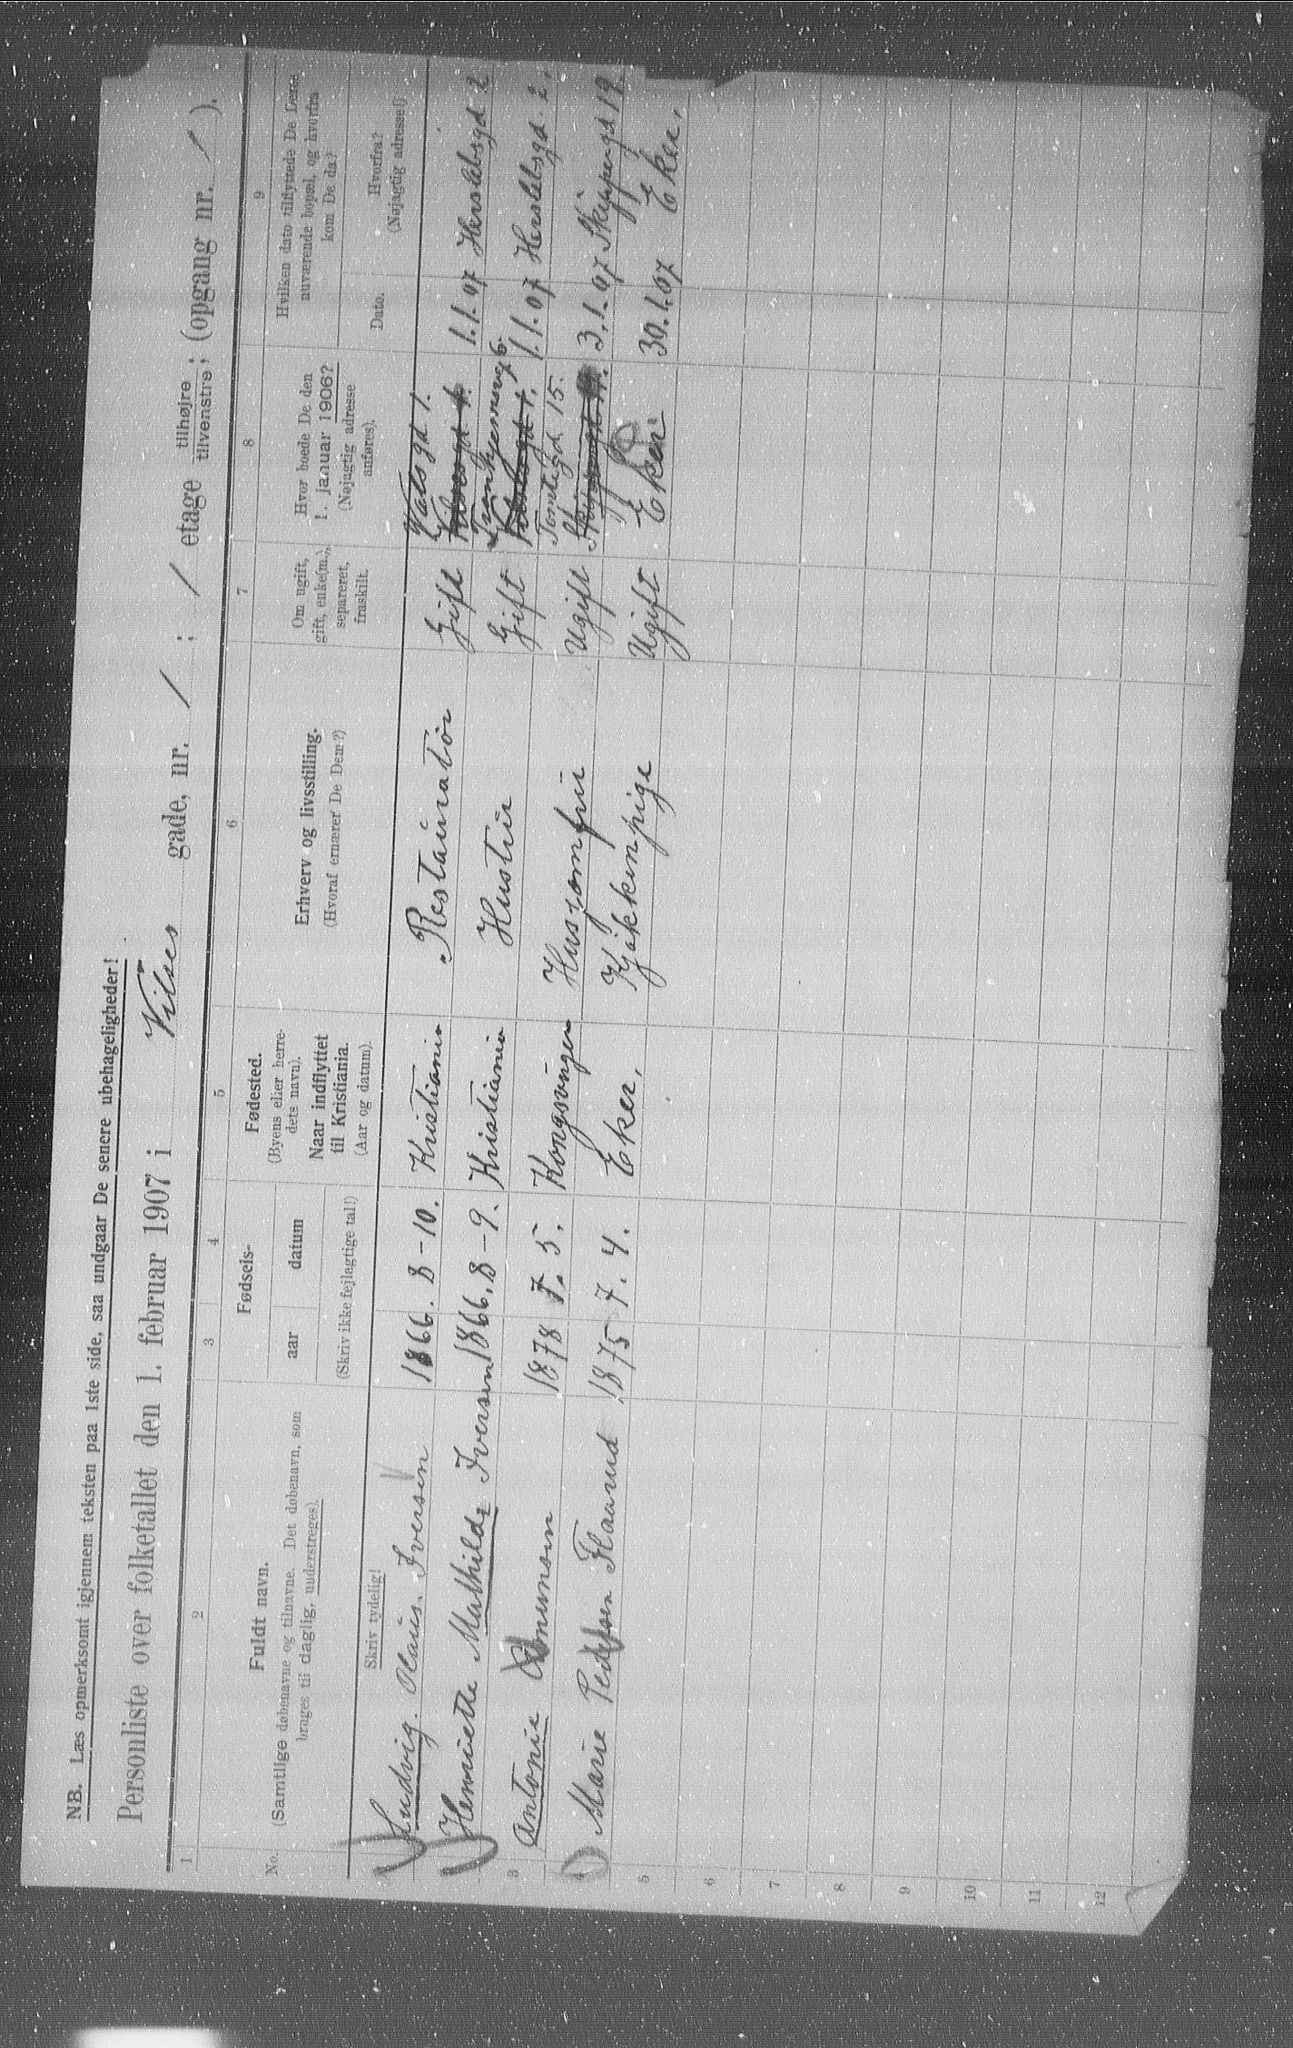 NB. Læs opmerksomt igjennem teksten paa 1ste side, saa undgaar De senere ubehageligheder!
Personliste over folketallet den 1. februar 1907 i Vilses gade, nr. 1 ; 1 etage tilhøjre tilvenstre ; (opgang nr. / ).
1 2 3 4 5 6 7 8 9
No.
Fuldt navn.
(Samtlige døbenavne og tilnavne. Det døbenavn, som
bruges til daglig, understreges).
Skriv tydelig!
Fødsels-
aar datum
(Skriv ikke fejlagtige tal!)
Fødested.
(Byens eller herre-
dets navn).
Naar indflyttet
til Kristiania.
(Aar og datum).
Erhverv og livsstilling.
(Hvoraf ernærer De Dem?)
Om ugift,
gift, enke(m.),
separeret,
fraskilt.
Hvor boede De den
1. januar 1906?
(Nøjagtig adresse
anføres).
Hvilken dato tilflyttede De Deres
nuværende bopæl, og hvorfra
kom De da?
Dato.
Hvorfra?
(Nøjagtig adresse!)
Ludvig Olaus Iversen 1866. 8-10. Kristiania Restauratør Gift 1.1.07 Herslebsgd 2
Henriette Mathilde Iversen 1866. 8-9. Kristiania Hustru Gift 1.1.07 Herslebsgd. 2.
3 Antonie 1878 7. 5. Kongsvinger Husjomfru Ugift Tomtegd 15. 3.1.07 Skippergd 19.
Marie Pedersen Flaarud 1875 7. 4. Eker. Kjøkkenpige Ugift Eker 30.1.07 Eker.
5
6
7
8
9
10
11
12